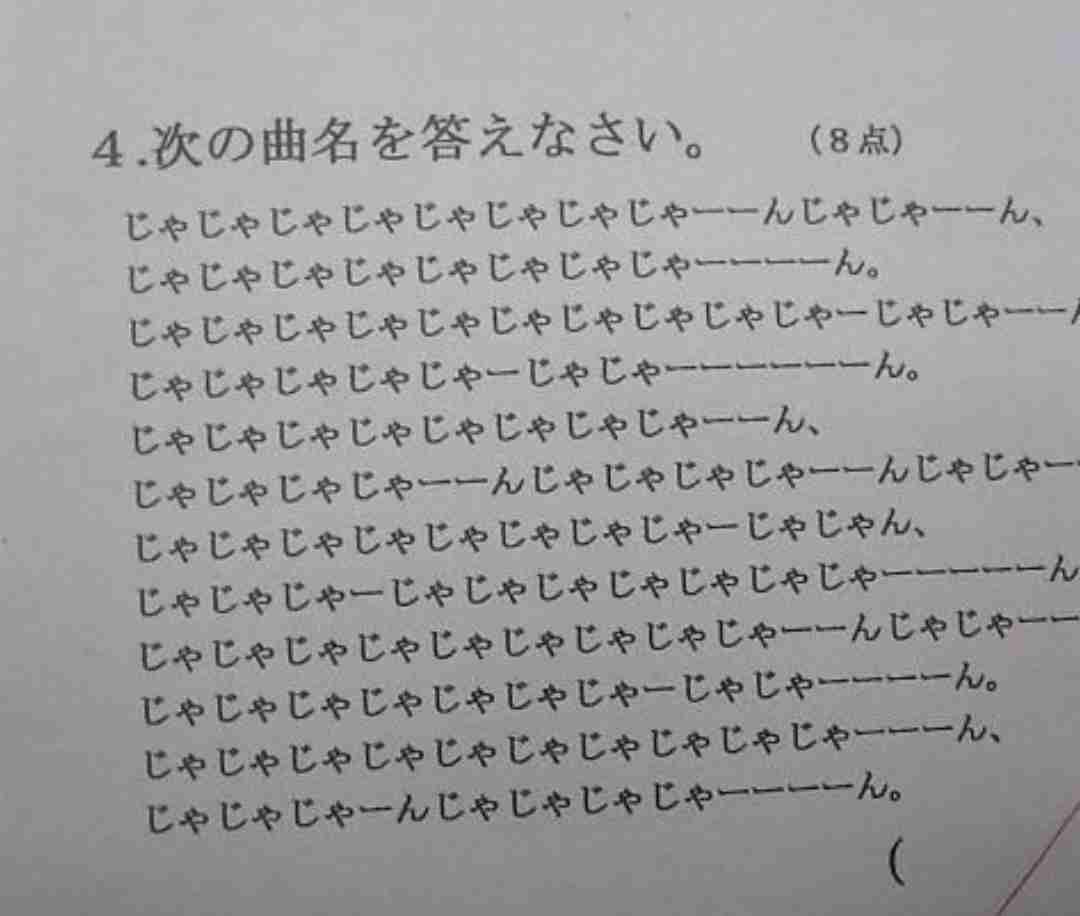 4.次の曲名を答えなさい。 (8点)
じゃじゃじゃじゃじゃじゃじゃじゃーーんじゃじゃーーん、
じゃじゃじゃじゃじゃじゃじゃじゃーーーーん。
じゃじゃじゃじゃじゃじゃじゃじゃじゃじゃーじゃじゃーーん
じゃじゃじゃじゃじゃーじゃじゃーーーーーーん。
じゃじゃじゃじゃじゃじゃじゃじゃーーん、
じゃじゃじゃじゃーーんじゃじゃじゃじゃーーんじゃじゃーー
じゃじゃじゃじゃじゃじゃじゃじゃーじゃじゃん、
じゃじゃじゃーじゃじゃじゃじゃじゃじゃじゃーーーーーん
じゃじゃじゃじゃじゃじゃじゃじゃじゃーーんじゃじゃーー
じゃじゃじゃじゃじゃじゃじゃーじゃじゃーーーーん。
じゃじゃじゃじゃじゃじゃじゃじゃじゃじゃーーーん、
じゃじゃじゃーんじゃじゃじゃじゃーーーーん。
(